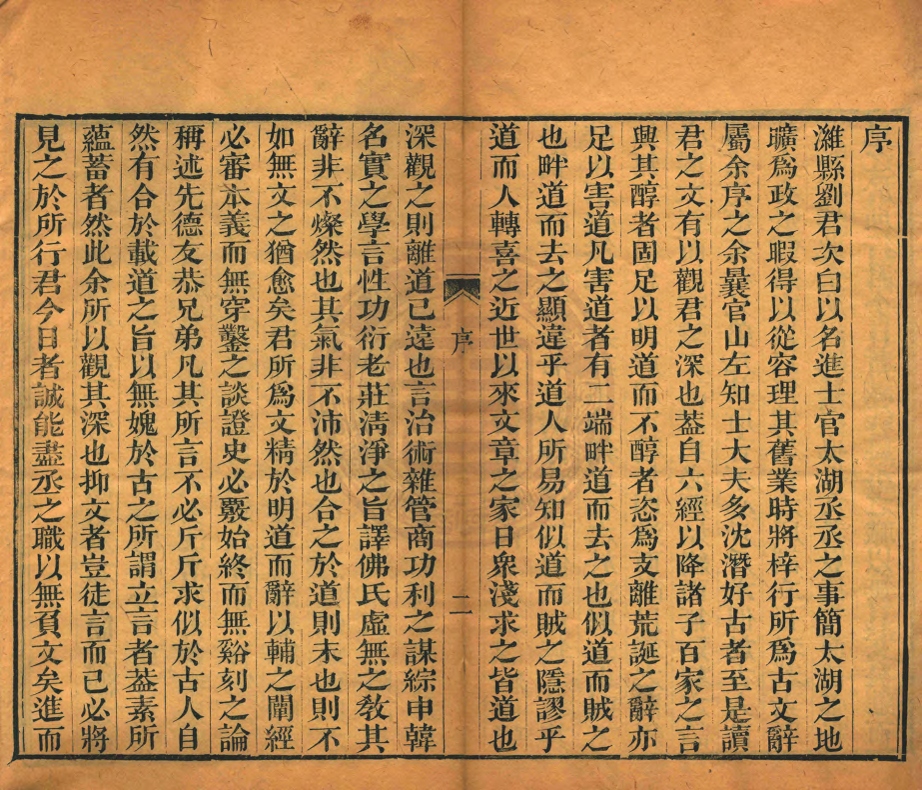 序
濰縣劉君次白以名進士官太湖丞丞之事簡太湖之地
曠爲政之暇得以從容理其舊業時將梓行所爲古文辭
屬余序之余曩官山左知士大夫多沈潛好古者至是讀
君之文有以觀君之深也葢自六經以降諸子百家之言
興其醇者固足以明道而不醇者恣爲支離荒誕之辭亦
足以害道凡害道者有二端畔道而去之也似道而賊之
也畔道而去之顯違乎道人所易知似道而賊之隱謬乎
道而人轉喜之近世以來文章之家日衆淺求之皆道也
序
二
深觀之則離道已遠也言治術雜管商功利之謀綜申韓
名實之學言性功衍老莊淸淨之旨譯佛氏虛無之敎其
辭非不燦然也其氣非不沛然也合之於道則未也則不
如無文之猶愈矣君所爲文精於明道而辭以輔之闡經
必審本義而無穿鑿之談證史必覈始終而無谿刻之論
稱述先德友恭兄弟凡其所言不必斤斤求似於古人自
然有合於載道之旨以無媿於古之所謂立言者葢素所
蘊蓄者然此余所以觀其深也抑文者豈徒言而已必將
見之於所行君今日者誠能盡丞之職以無負文矣進而